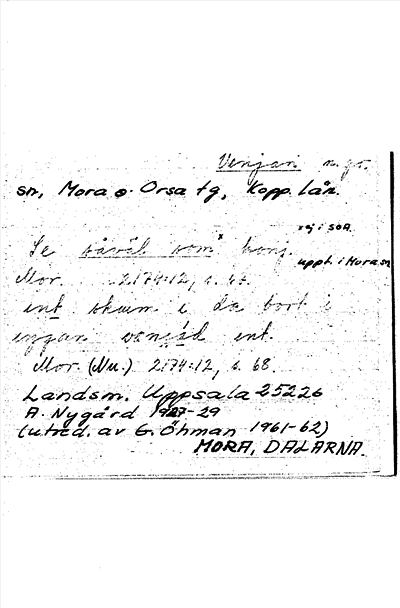 Venjan n.gr.
sn, Mora o. Orsa tg, Kopp. län.
ej i SOA
Se såväl som konj.
uppt. i Mora sn
Mor. 2174:12, s.
int i da bort i
int.
Mor. (Nu.) 2174:12, s. 68.
Landsm. Uppsala 25226
A. Nygård 1927-29
(utred. av G. Öhman 1961-62)
MORA, DALARNA.